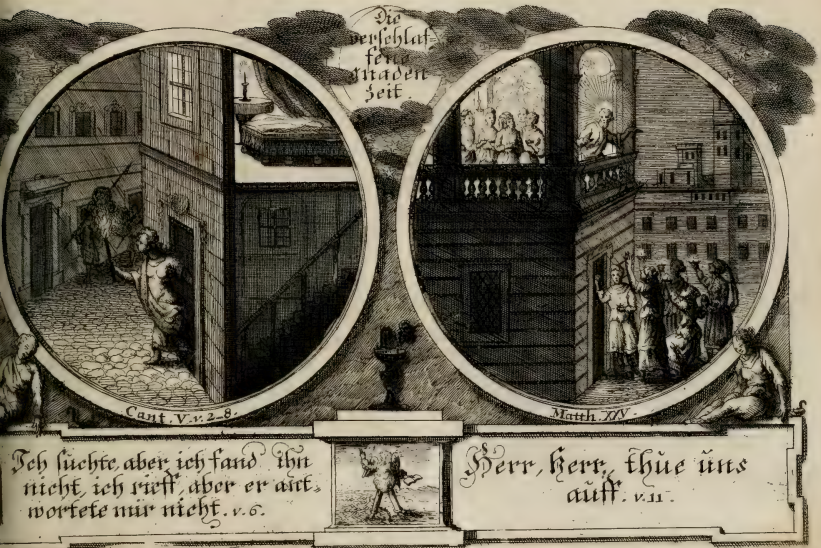 Die
verschlaf-
fene
Gnaden
Zeit.
Cant. V. v. 2-8.
Matth. XXV.
Ich suchte, aber ich fand ihn
nicht, ich rieff, aber er ant-
wortete mir nicht. v. 6.
Herr, Herr, thüe üns
auff. v. 11.